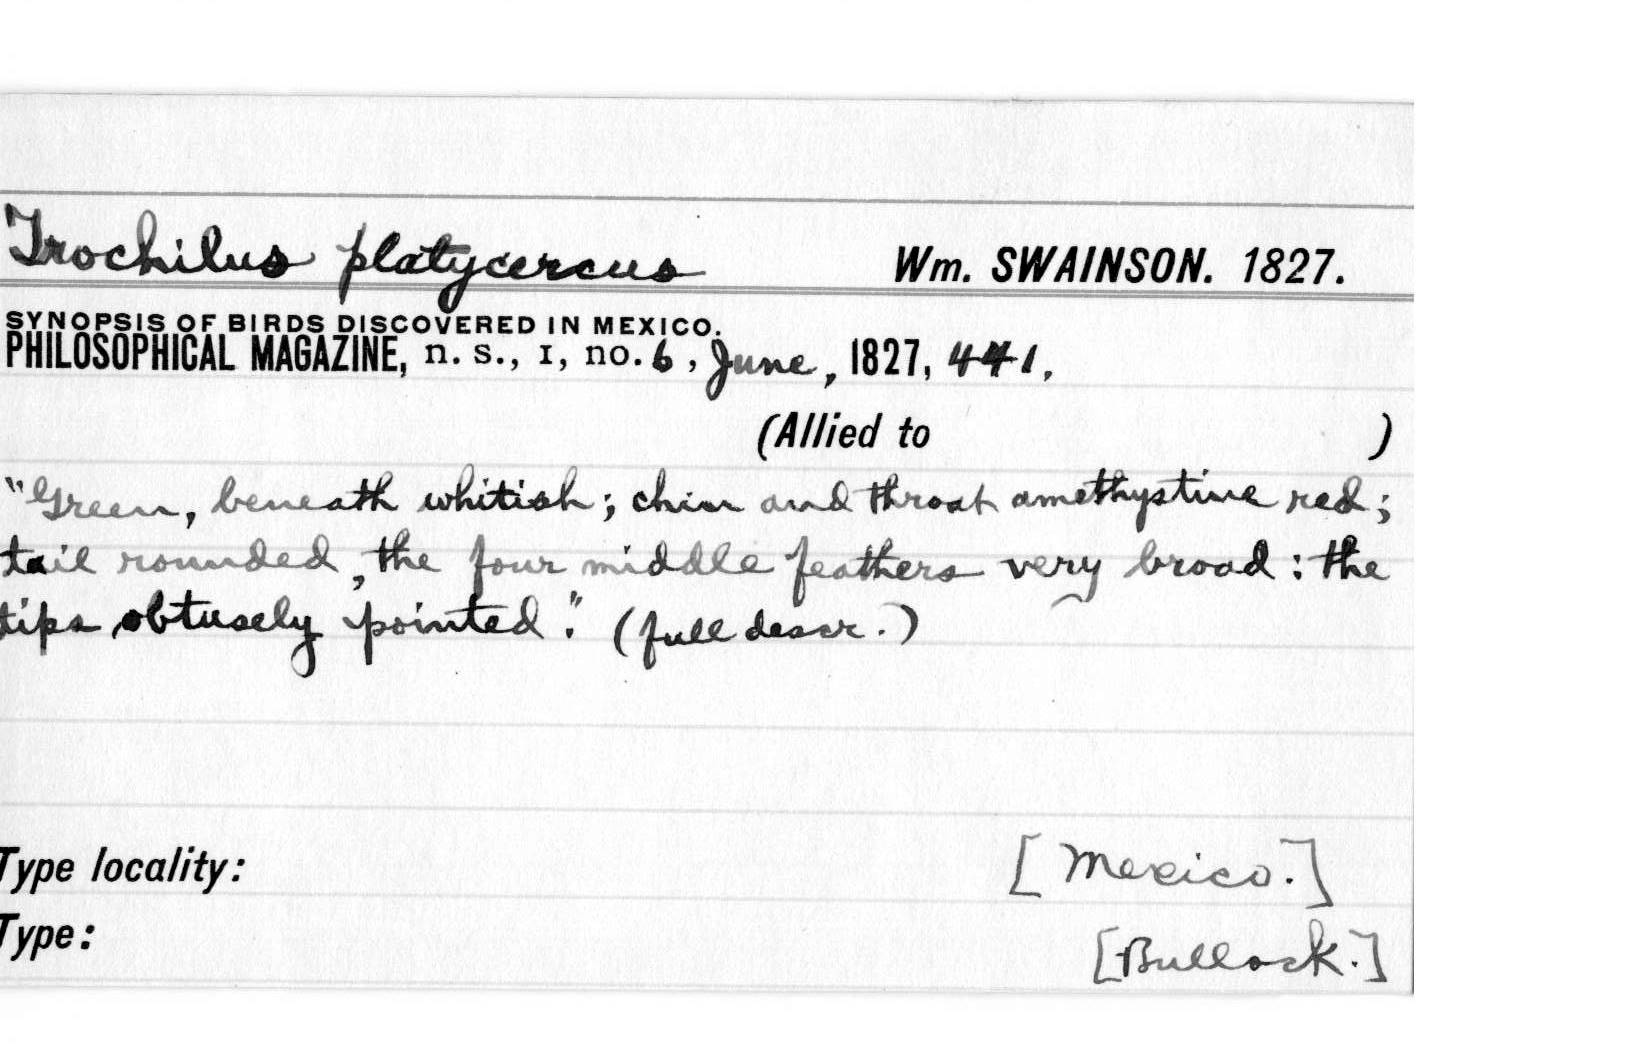 Trochilus platycercus Wm. SWAINSON. 1827.
SYNOPSIS OF BIRDS DISCOVERED IN MEXICO.
PHILOSOPHICAL MAGAZINE, n. s., I, no. 6, June, 1827, 441.
(Allied to )
"Green, beneath whitish; chin and throat amethystine red;
tail rounded, the four middle feathers very broad: the
tips obtusely pointed." (full descr.)
Type locality: [Mexico.]
Type: [Bullock.]